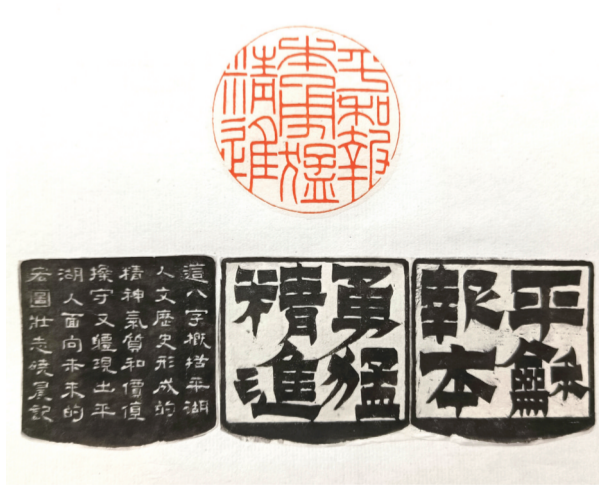 平和報
本勇猛
精進
平龢
報本
勇猛
精進
這八字概括平湖
人文歷史形成的
精神氣質和價值
操守又體現出平
湖人面向未來的
宏圖壯志曉晨記